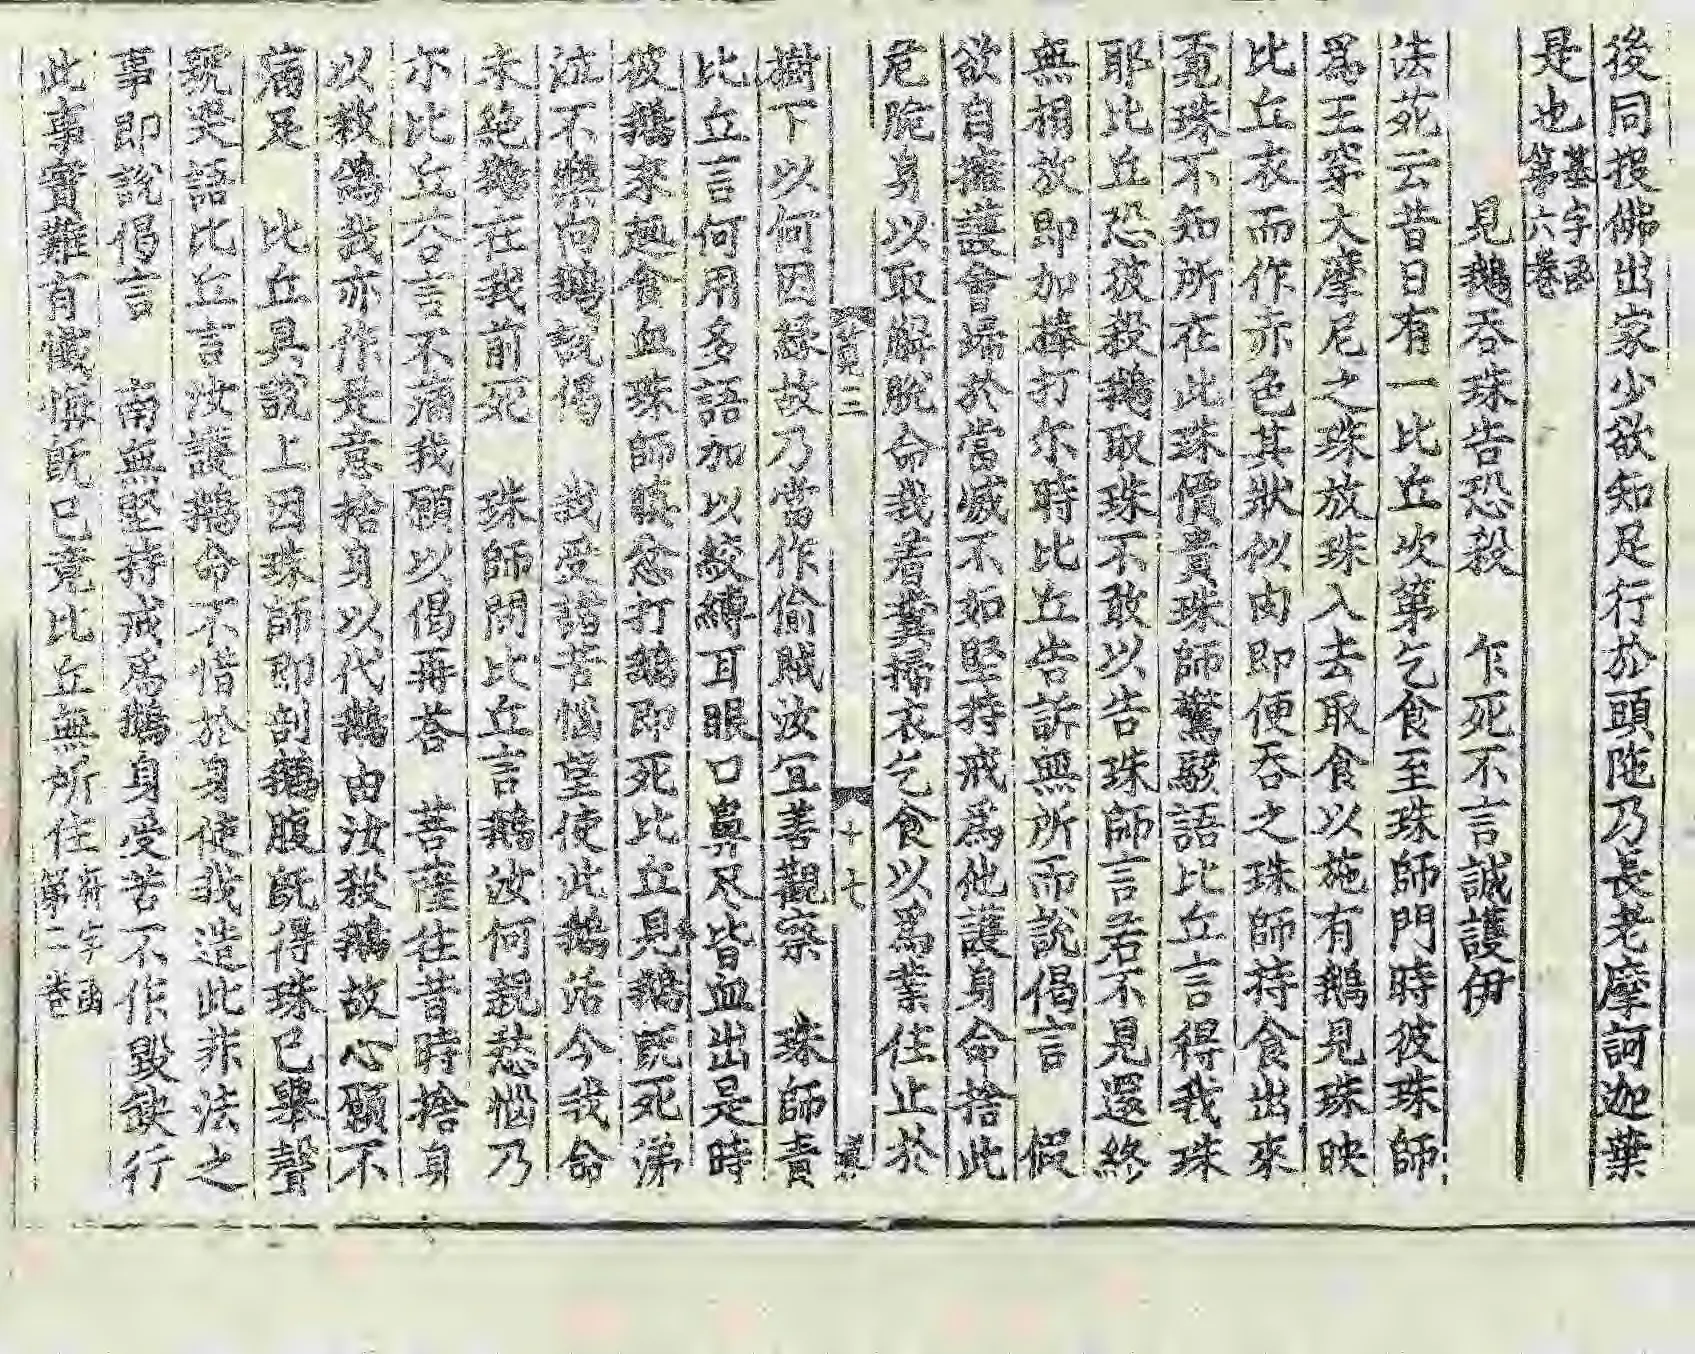 後同投佛出家少欲知足行於頭陁乃長老摩訶迦葉
是也基字函第六卷
見鵝吞珠告恐殺　乍死不言誠護伊
法苑云昔日有一比丘次第乞食至珠師門時彼珠師
爲王穿大摩尼之珠放珠入去取食以施有鵝見珠映
比丘衣而作赤色其狀似肉即便吞之珠師持食出來
覓珠不知所在此珠價貴珠師驚駭語比丘言得我珠
耶比丘恐彼殺鵝取珠不敢以告珠師言若不見還終
無捐放即加捧打尒時比丘告訴無所而說偈言　假
欲自擁護會歸於當滅不如堅持戒爲他護身命捨此
危脆身以取解脫命我着糞掃衣乞食以爲業住止於
三　十七
樹下以何因緣故乃當作偷賊汝冝善觀察　珠師責
比丘言何用多語加以絞縛耳眼口鼻尽皆血出是時
彼鵝來趣食血珠師瞋忿打鵝即死比丘見鵝旣死涕
泣不樂向鵝說偈　我受諸苦惱望使此鵝活今我命
未絶鵝在我前死　珠師問比丘言鵝汝何親愁惱乃
尒比丘答言不痛我願以偈再荅　菩薩往昔時捨身
以救鴿我亦作是意捨身以代鵝由汝殺鵝故心願不
滿足　比丘具說上因珠師即剖鵝腹旣得珠已舉聲
號哭語比丘言汝護鵝命不惜於身使我造此非法之
事即說偈言　南無堅持戒爲鵝身受苦不作毀缺行
此事實難有懺悔旣已竟比丘無所住字函第二卷